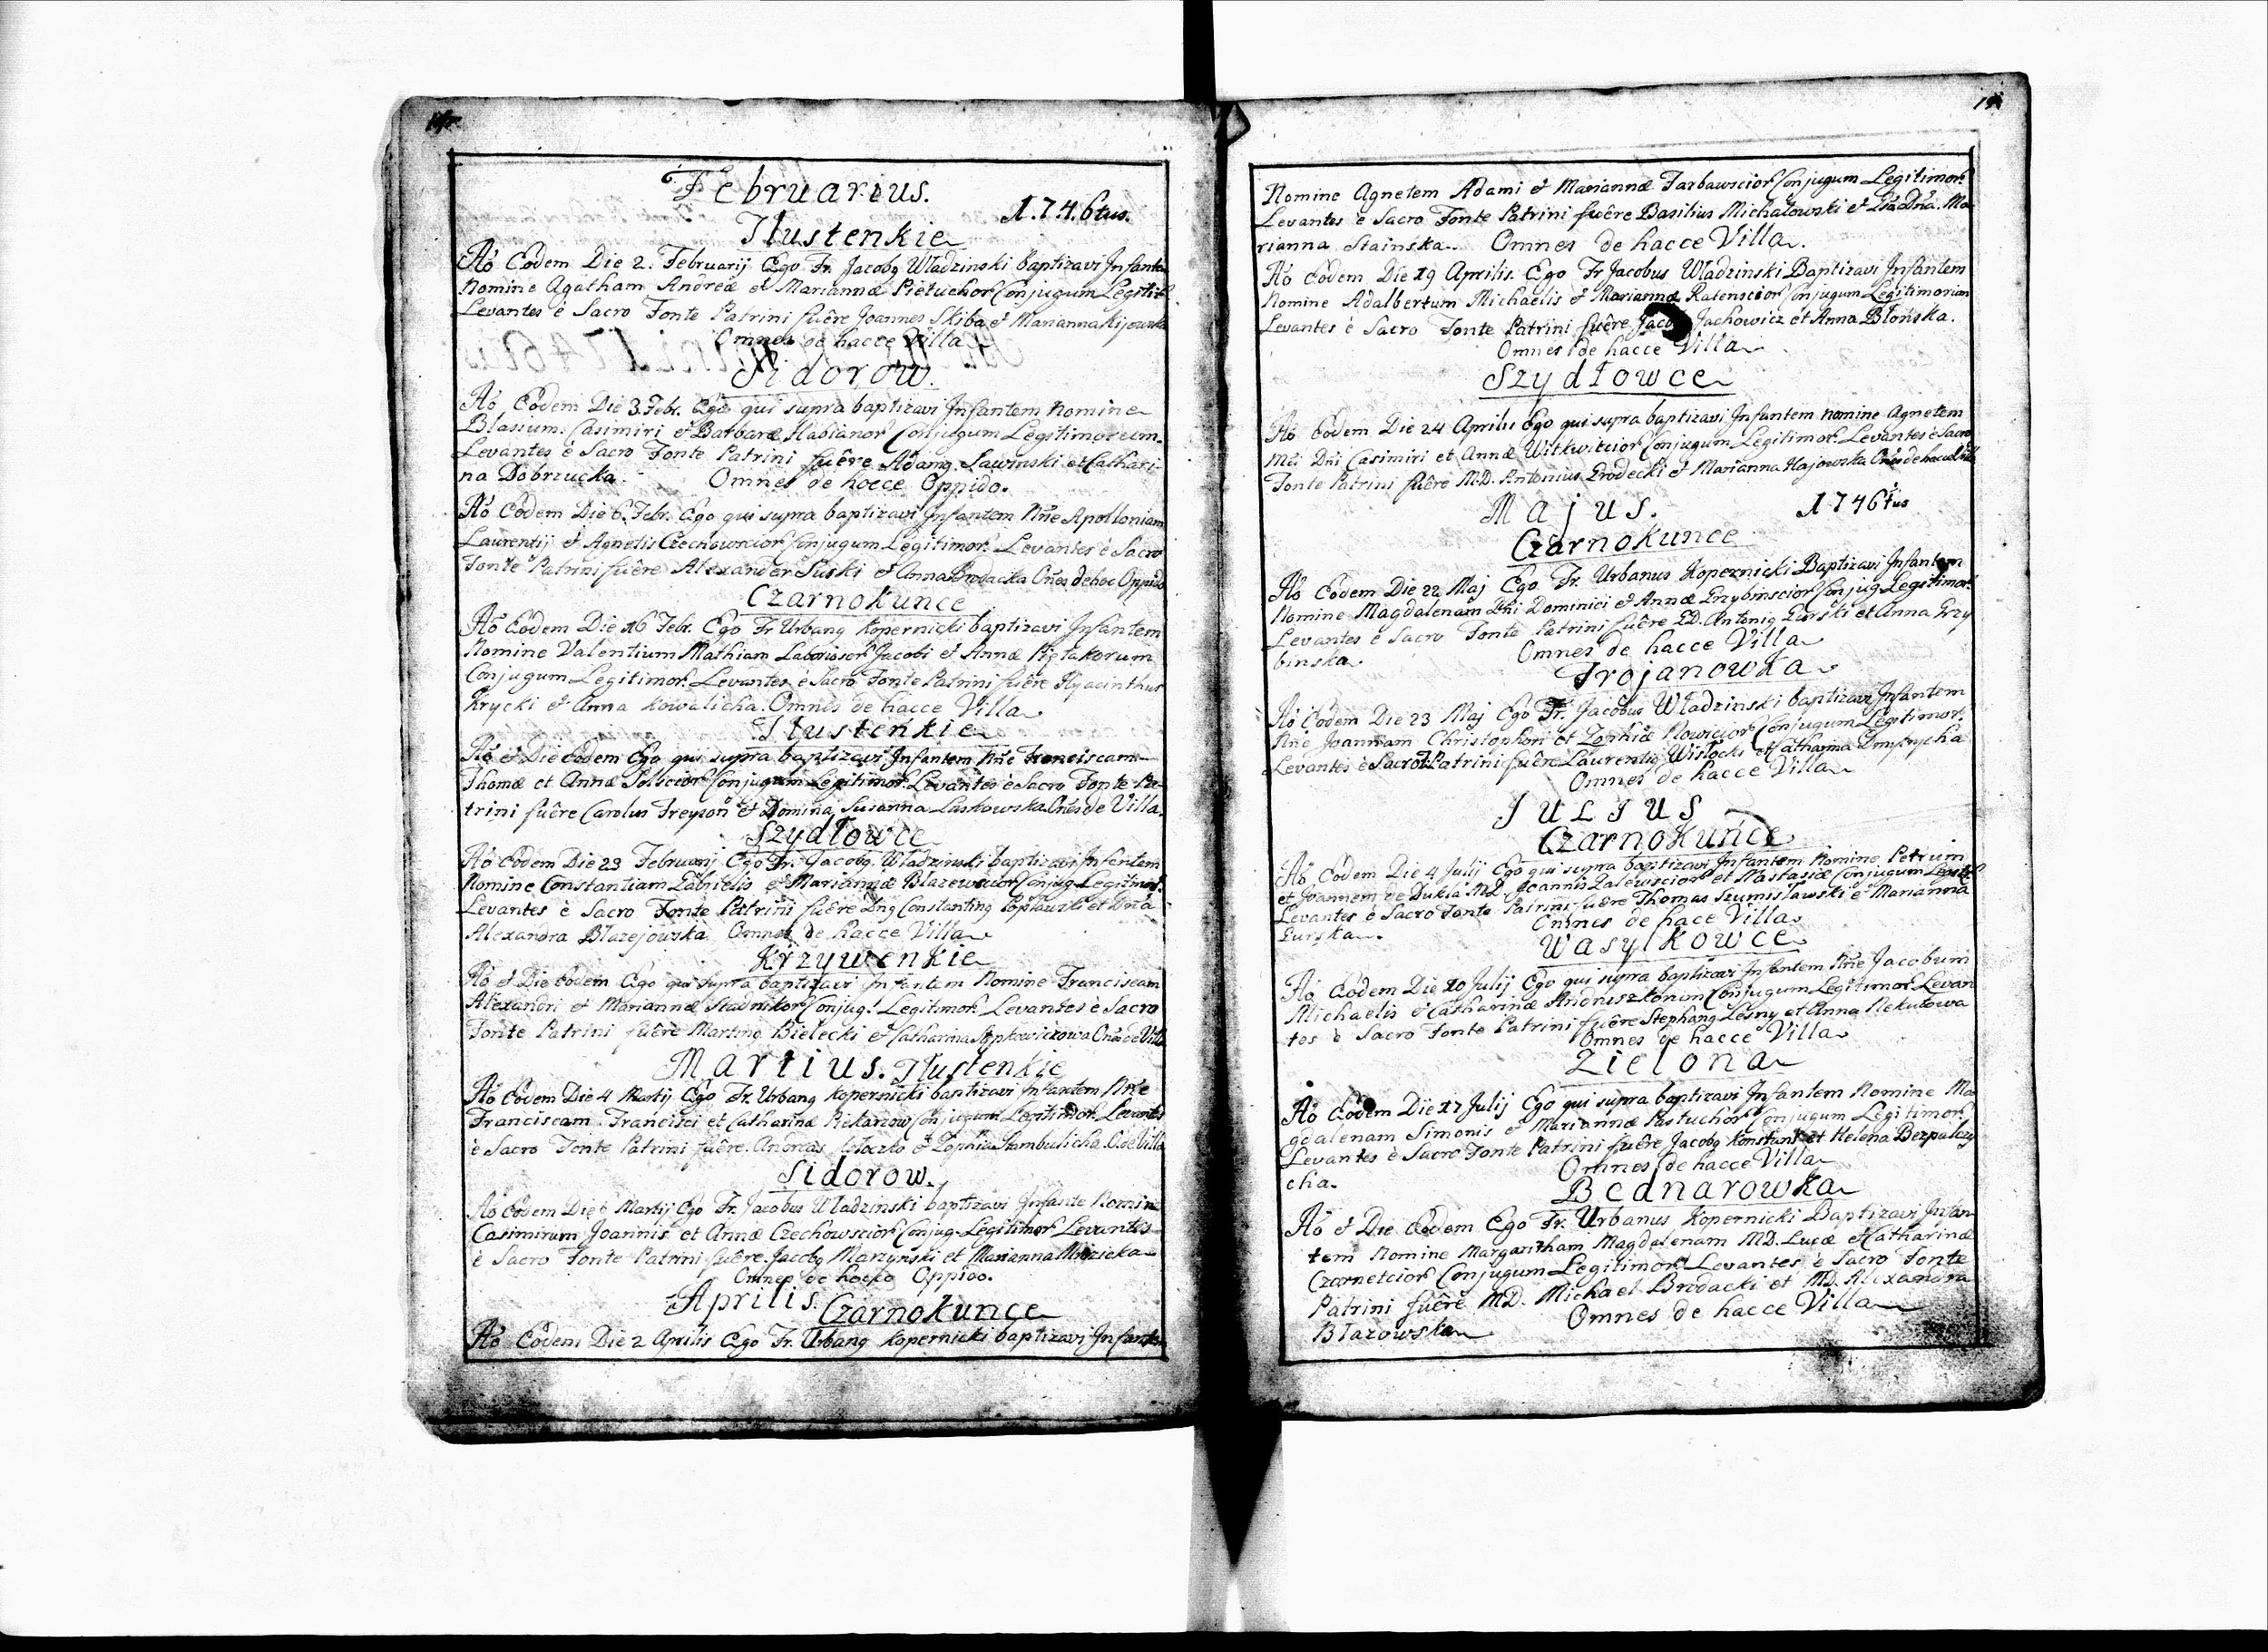 Februarius.
1.7.4.6tus.
Tłustenkie
Ao Eodem Die 2. Februarij Ego Fr. Jacobq Wladzinski baptizavi Infantem
Nomine Agatham Andreæ et Mariannæ Pietuchor Conjugum Legitim
Levantes è Sacro Fonte Patrini fuêre Joannes Skiba et Marianna Kijowska
Omnes de hacce Villa
Sidorow.
Ao Eodem Die 3. Febr. Ego qui supra baptizavi Infantem Nomine
Blasium Casimiri et Barbaræ Habianor Conjugum Legitimorum
Levantes è Sacro Fonte Patrini fuêre Adamq Sawinski et Cathari-
na Dobrzucka. Omnes de hocce Oppido.
Ao Eodem Die 6. Febr. Ego qui supra baptizavi Infantem Nne Apolloniam
Laurentij et Agnetis Czechowscior Conjugum Legitimor. Levantes è Sacro
Fonte Patrini fuêre Alexander Suski et Anna Brodacka Oñes de hoc Oppido
Czarnokunce
Ao Eodem Die 16 Febr. Ego Fr Urbanq Kopernicki baptizavi Infantem
Nomine Valentium Mathiam Laboriosor Jacobi et Annæ Piętakorum
Conjugum Legitimor. Levantes è Sacro Fonte Patrini fuêre Hyacinthus
Krycki et Anna Kowalicha. Omnes de hacce Villa
Tłustenkie
Ao et Die eodem Ego qui supra baptizavi Infantem Nne Franciscam
Thomæ et Annæ Conjugum Legitimor. Levantes è Sacro Fonte Pa-
trini fuêre Carolus Freyzon et Domina Susanna Laskowska Oñes de Villa.
Szydłowce
Ao Eodem Die 23 Februarij Ego Fr. Jacobq Wladzinski baptizavi Infantem
Nomine Constantiam Gabrielis et Mariannæ Błazewscior Conjug. Legitimor.
Levantes è Sacro Fonte Patrini fuêre Dnq Constantinq Popławski et Dna
Alexandra Błazejowska Omnes de hacce Villa
Krzywenkie
Ao et Die Eodem Ego qui supra baptizavi Infantem Nomine Franciscam
Alexandri et Mariannæ Stadnikor Conjug. Legitimor. Levantes è Sacro
Fonte Patrini fuêre Martinq Bielecki et Catharina Stępkowiczowa Oñes de Villa
Martius. Tłustenkie
Ao Eodem Die 4 Martij Ego Fr. Urbanq Kopernicki baptizavi Infantem Nne
Franciscam Francisci et Catharinæ Piekarzow Conjugum Legitimor. Levantes
è Sacro Fonte Patrini fuêre. Andreas et Zophia Stambulicha. O. de Villa
Sidorow.
Ao Eodem Die 6 Martij Ego Fr. Jacobus Wladzinski baptizavi Infante Nomin
Casimirum Joannis et Annæ Czechowscior Conjug. Legitimor Levantes
è Sacro Fonte Patrini fuêre. Jacobq Marzynski et Marianna
Omnes de hocce Oppido.
Aprilis. Czarnokunce
Ao Eodem Die 2 Aprilis Ego Fr. Urbanq Kopernicki baptizavi Infantem
Nomine Agnetem Adami et Mariannæ Tarbawscior Conjugum Legitimor.
Levantes è Sacro Fonte Patrini fuêre Basilius Michałowski et Ma-
rianna Stainska. Omnes de hacce Villa.
Ao Eodem Die 19 Aprilis. Ego Fr Jacobus Wladzinski Baptizavi Infantem
Nomine Adalbertum Michaelis et Mariannæ Ratenscior Conjugum Legitimorum
Levantes è Sacro Fonte Patrini fuêre Jacob Jachowicz et Anna Błońska.
Omnes de hacce Villa
Szydłowce
Ao Eodem Die 24 Aprilis Ego qui supra baptizavi Infantem nomine Agnetem
Mci Dni Casimiri et Annæ Witkwicior Conjugum Legitimor. Levantes è Sacro
Fonte Patrini fuêre M.D. Antonius Grodecki et Marianna Hajowska Oñes de hacce Villa
Majus. 1746tus
Czarnokunce
Ao Eodem Die 22 Maj Ego Fr. Urbanus Kopernicki Baptizavi Infantem
Nomine Magdalenam Dni Dominici et Annæ Grzybinscior Conjug. Legitimor.
Levantes è Sacro Fonte Patrini fuêre G.D. Antoniq Gurski et Anna Grzy
binska. Omnes de hacce Villa
Trojanowka
Ao Eodem Die 23 Maj Ego Fr. Jacobus Wladzinski baptizavi Infantem
Nne Joannam Christophori et Zophiæ Nowicior Conjugum Legitimor.
Levantes è Sacro F. Patrini fuêre Laurentiq Wisłocki et Catharina Dmytrycha
Omnes de hacce Villa
JULIUS
Czarnokuńce
Ao Eodem Die 4 Julij Ego qui supra baptizavi Infantem Nomine Petrum
et Joannem de Dukla M.D. Joannis Zalewscior et Nastasiæ Conjugum Legit.
Levantes è Sacro Fonte Patrini fuêre Thomas Szumisławski et Marianna
Gurska. Omnes de hace Villa
Wasylkowce
Ao Eodem Die 10 Julij Ego qui supra baptizavi Infantem Nne Jacobum
Michaelis et Catharinæ Andruszkorum Conjugum Legitimor. Levan
tes è Sacro Fonte Patrini fuêre Stephanq Lesny et Anna Rekutowa
Omnes de hacce Villa
Zielona
Ao Eodem Die 17 Julij Ego qui supra baptizavi Infantem Nomine Ma
gdalenam Simonis et Mariannæ Pastuchor Conjugum Legitimor.
Levantes è Sacro Fonte Patrini fuêre Jacobq Konstant et Helena Bezpalczy
cha. Omnes de hacce Villa
Bednarowka
Ao et Die Eodem Ego Fr. Urbanus Kopernicki Baptizavi Infan
tem Nomine Margaritham Magdalenam M.D. Lucæ et Catharinæ
Czarnetcior Conjugum Legitimor. Levantes è Sacro Fonte
Patrini fuêre M.D. Michael Brodacki et M.D. Alexandra
Błazowska Omnes de hacce Villa